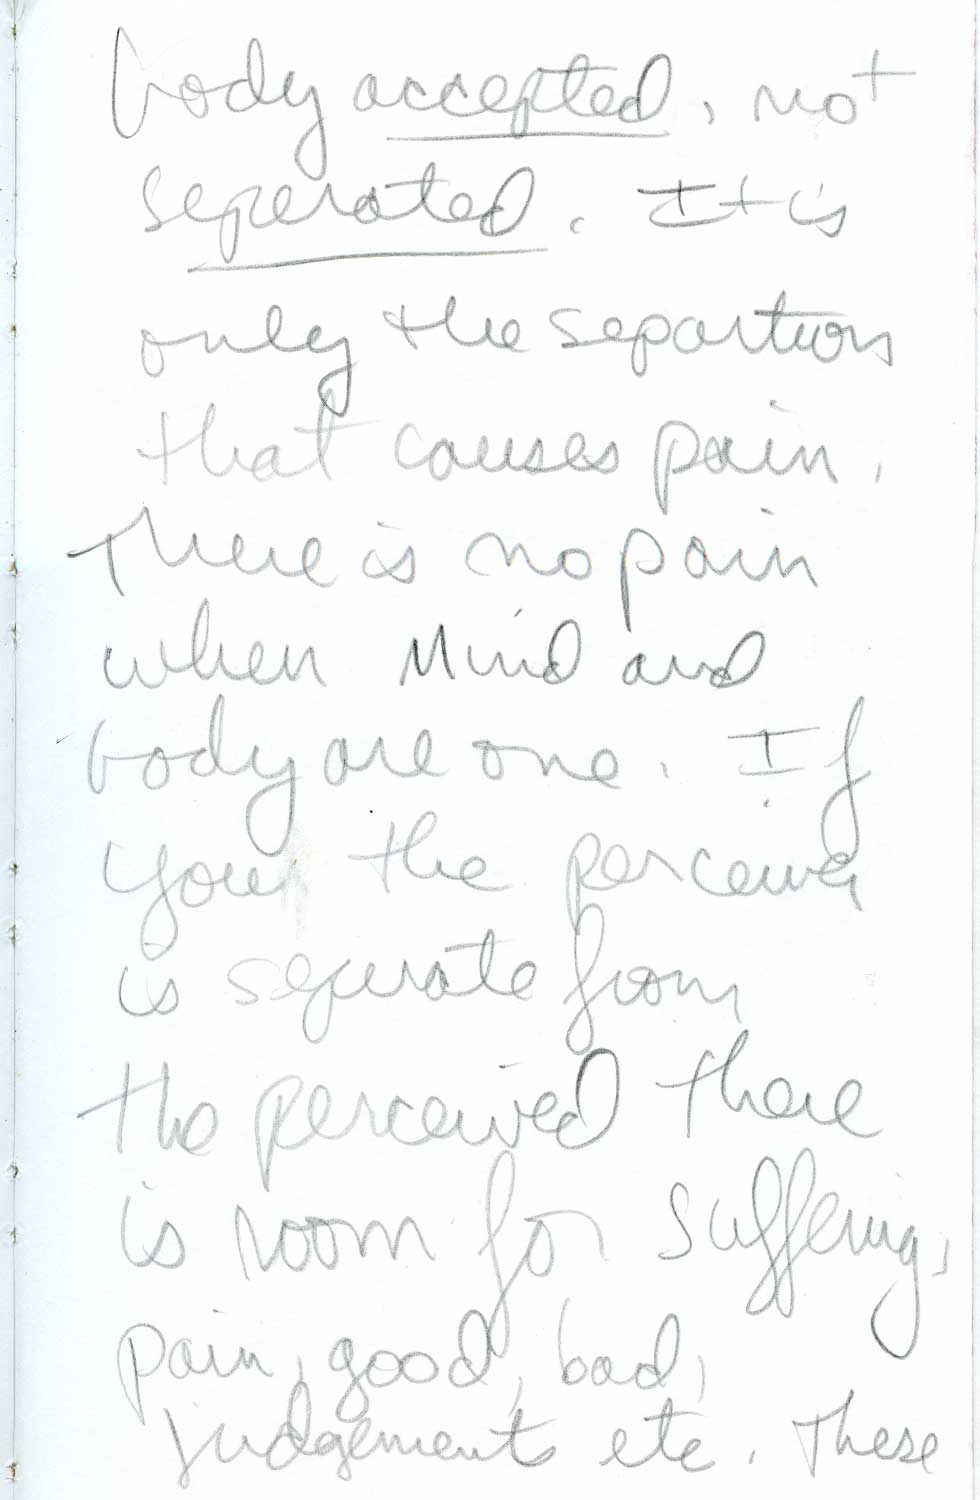 body accepted, not
seperated. It is
only the separtion
that causes pain.
There is no pain
when Mind and
body are one. If
you the perceiver
is seperate from
the perceived there
is room for suffering,
pain, good, bad,
judgements etc. These